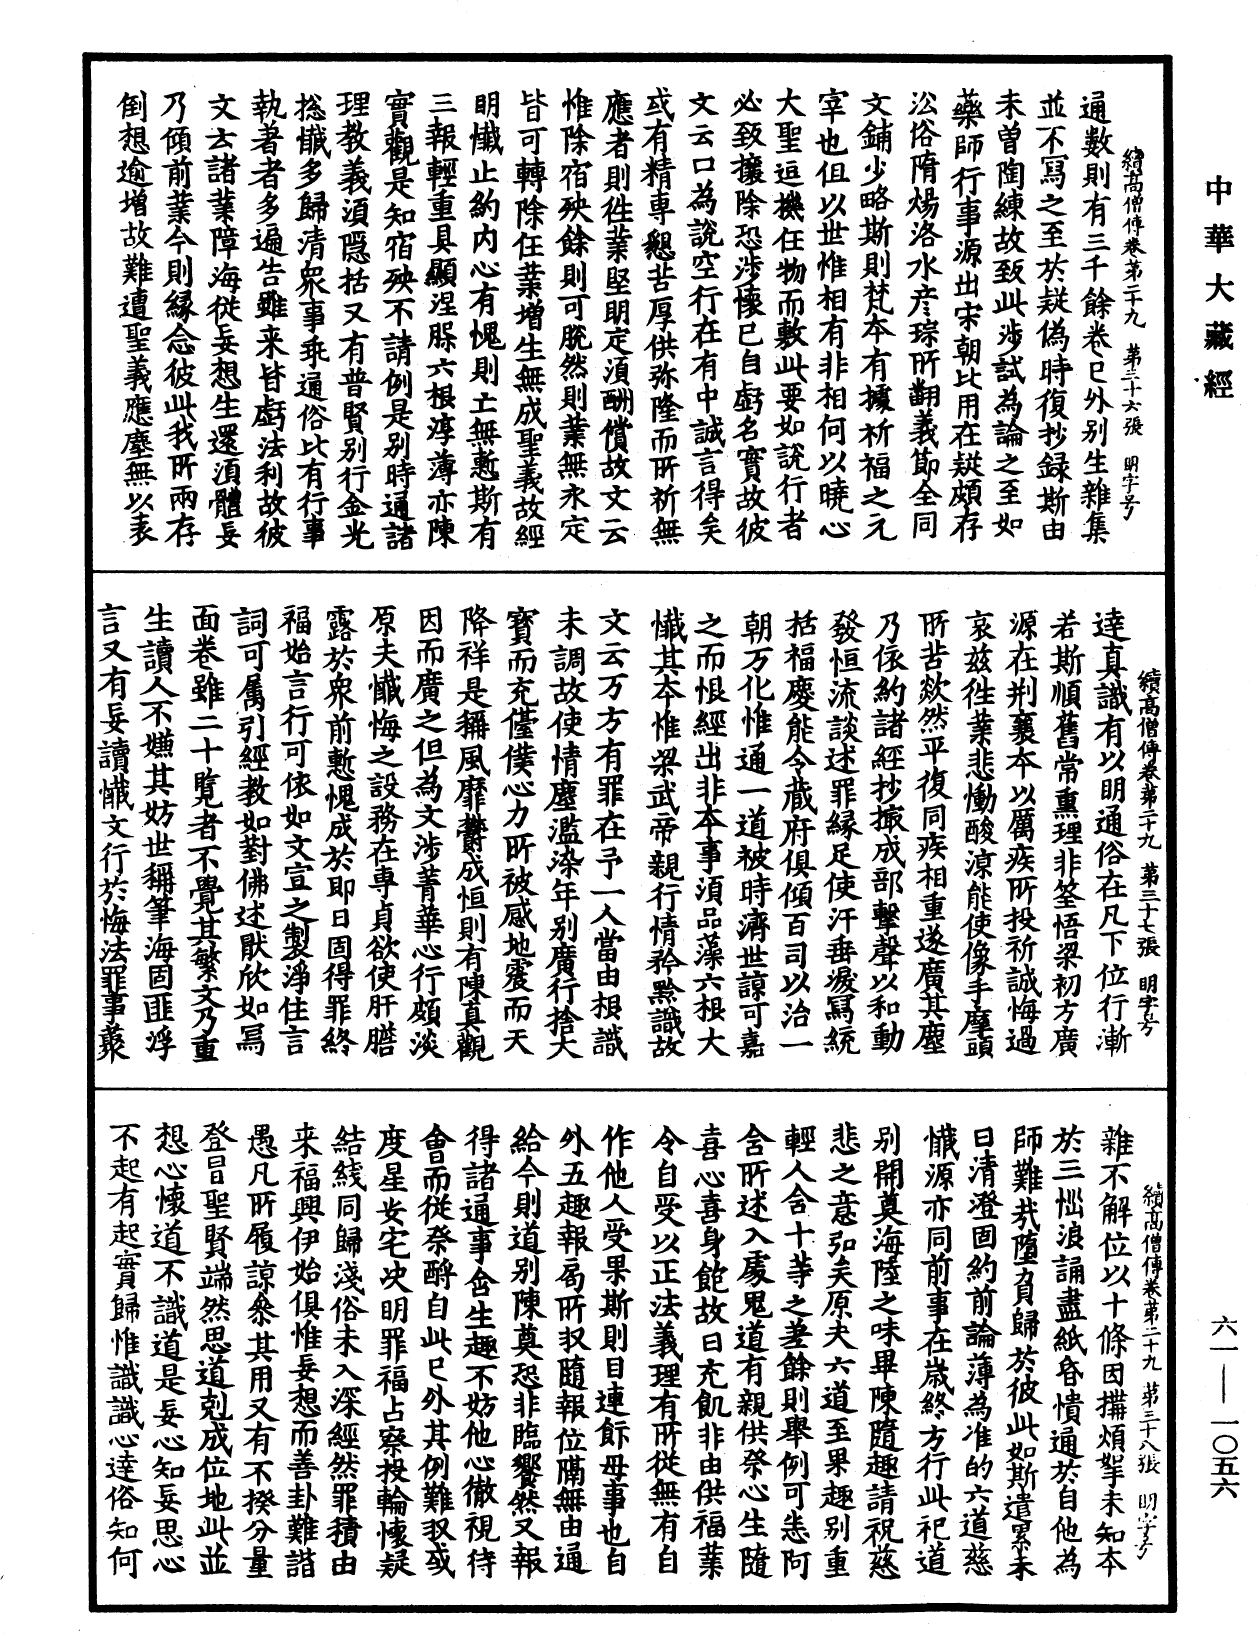 中華大藏經
續高僧傳卷第二十九　第三十六張　明字号
通數則有三千餘卷已外别生雜集
並不寫之至於疑偽時復抄録斯由
未曾陶練故致此涉試為論之至如
藥師行事源出宋朝比用在疑頗存
沿俗隋煬洛水彦琮所翻義節全同
文鋪少略斯則梵本有據祈福之元
宰也但以世惟相有非相何以曉心
大聖逗機任物而敷此要如說行者
必致攘除恐涉懷已自虧名實故彼
文云口為說空行在有中誠言得矣
或有精專懇苦厚供弥隆而所祈無
應者則徃業堅明定湏酬償故文云
惟除宿殃餘則可脫然則業無永定
皆可轉除任業增生無成聖義故經
明懺止約内心有愧則亡無慙斯有
三報輕重具顯涅槃六根淳薄亦陳
實觀是知宿殃不請例是别時通諸
理教義湏隱括又有普賢别行金光
捴懺多歸清衆事乖通俗比有行事
執著者多遍告雖来皆虧法利故彼
文云諸業障海從妄想生還湏體妄
乃傾前業今則緣念彼此我所兩存
倒想逾增故難遭聖義應塵無以表
續高僧傳卷第二十九　第三十七張　明字号
達真識有以明通俗在凡下位行漸
若斯順舊常熏理非筌悟梁初方廣
源在荆襄本以厲疾所投祈誠悔過
哀兹徃業悲慟酸涼能使像手摩頭
所苦欻然平復同疾相重遂廣其塵
乃依約諸經抄撮成部擊聲以和動
發恒流談述罪緣足使汗垂淚寫統
括福慶能令藏府俱傾百司以治一
朝万化惟通一道被時濟世諒可嘉
之而恨經出非本事湏品藻六根大
懺其本惟梁武帝親行情矜默識故
文云万方有罪在予一人當由根識
未調故使情塵濫染年别廣行捨大
寶而充僮僕心力所被感地震而天
降祥是稱風靡鬱成恒則有陳真觀
因而廣之但為文涉菁華心行頗淡
原夫懺悔之設務在專貞欲使肝膽
露於衆前慙愧成於即日固得罪終
福始言行可依如文宣之製淨住言
詞可屬引經教如對佛述猒欣如寫
面卷雖二十覽者不覺其繁文乃重
生讀人不嫌其妨世稱筆海固匪浮
言又有妄讀懺文行於悔法罪事蘩
續高僧傳卷第二十九　第三十八張　明字号
雜不解位以十條因搆煩挐未知本
於三㤞浪誦盡紙昏憒通於自他為
師難㢤墮負歸於彼此如斯遣累未
曰清澄固約前論薄為准的六道慈
懺源亦同前事在歲終方行此祀道
别開奠海陸之味畢陳隨趣請祝慈
悲之意弘矣原夫六道至果趣别重
輕人含十等之差餘則舉例可悉阿
含所述入處鬼道有親供祭心生隨
喜心喜身飽故曰充飢非由供福業
令自受以正法義理有所從無有自
作他人受果斯則目連餉母事也自
外五趣報局所収隨報位隔無由通
給今則道别陳奠恐非臨饗然又報
得諸通事含生趣不妨他心徹視待
會而從祭酹自此已外其例難収或
度星安宅决明罪福占察投輪懷疑
結綫同歸淺俗未入深經然罪積由
来福興伊始俱惟妄想而善卦難諧
愚凡所履諒參其用又有不揆分量
登冒聖賢端然思道剋成位地此並
想心懷道不識道是妄心知妄思心
不起有起實歸惟識識心達俗知何
六一—一〇五六